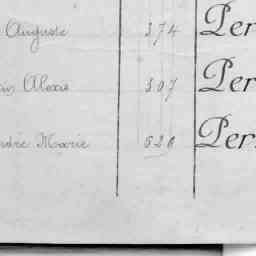 Auguste 374 Per
Alexis 307 Per
Marie 526 Per